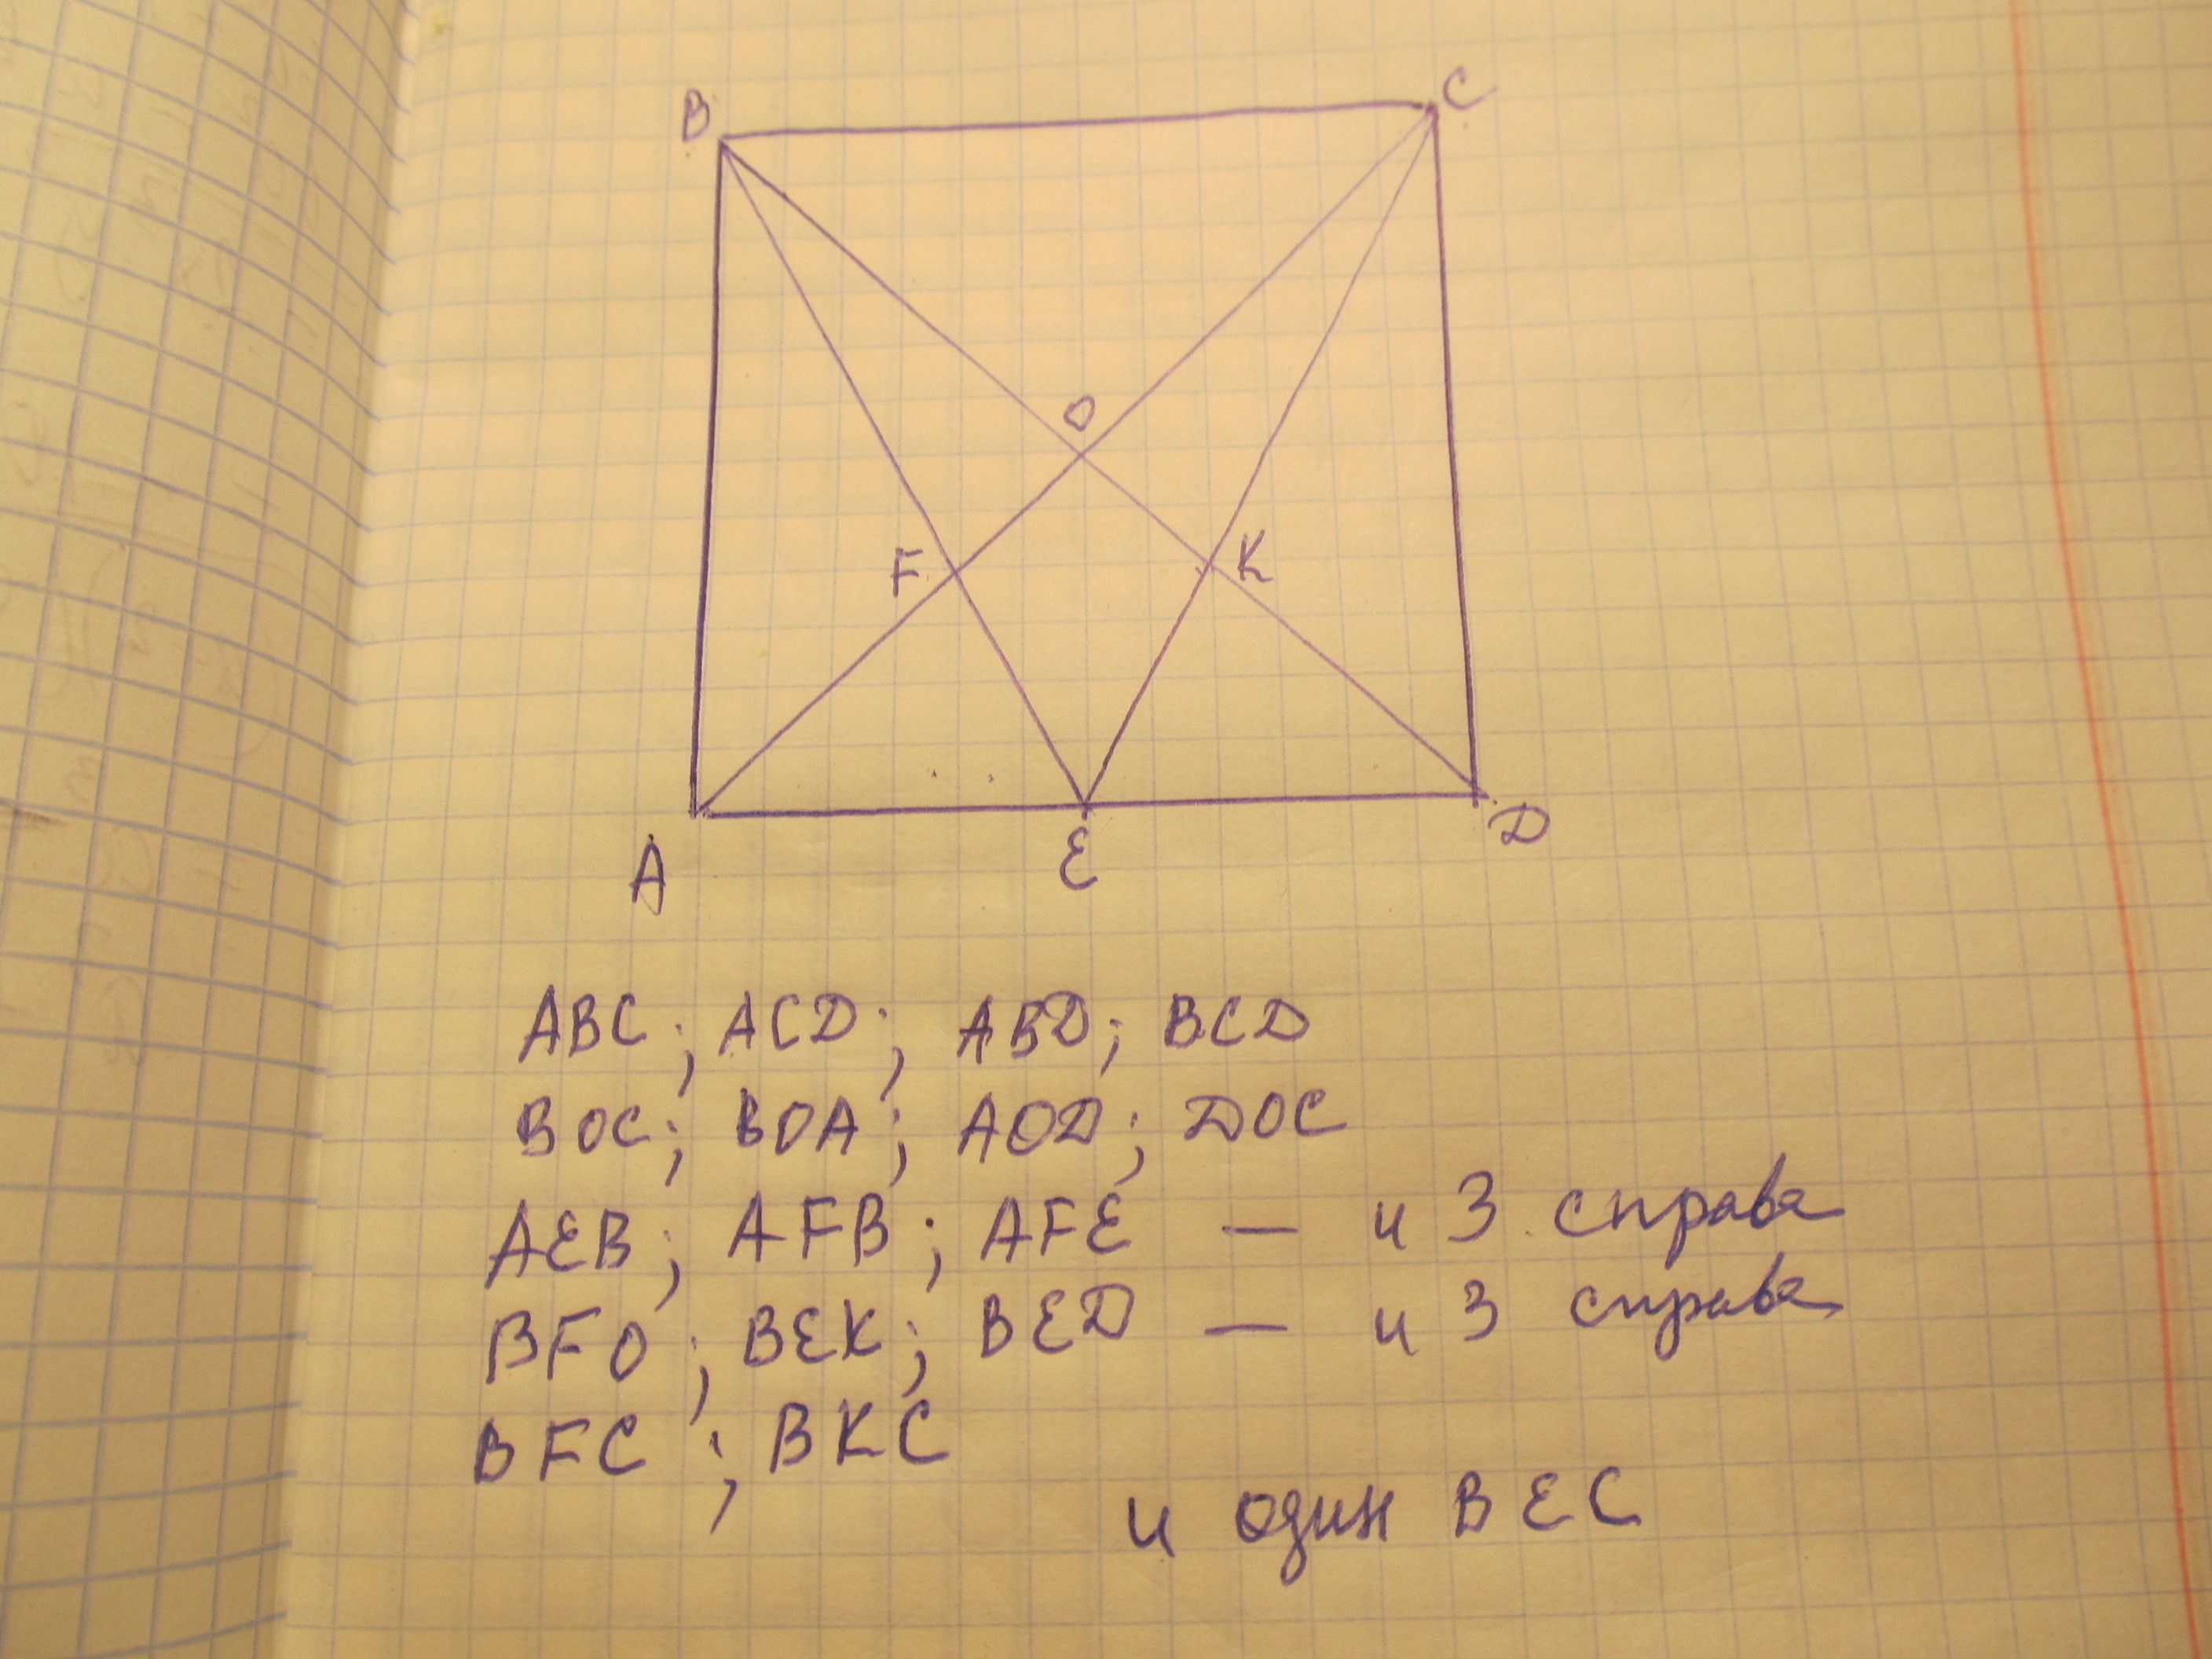 B C
O
F K
A E D
ABC; ACD; ABD; BCD
BOC; BOA; AOD; DOC
AEB; AFB; AFE — и 3 справа
BFO; BEK; BED — и 3 справа
BFC; BKC
и один BEC